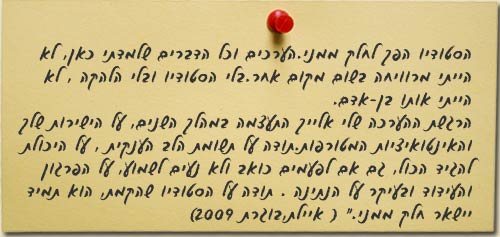 הסטודיו הפך לחלק ממני.הערכים וכל הדברים שלמדתי כאן, לא
הייתי מרוויחה בשום מקום אחר.בלי הסטודיו ובלי הלהקה , לא
הייתי אותו בן-אדם.
הרגשת ההערכה שלי אלייך התעצמה במהלך השנים, על הישירות שלך
והאינטואיציות המטורפות.תודה על תשומת הלב הענקית , על היכולת
להגיד הכול, גם אם לפעמים כואב ולא נעים לשמוע, על הפרגון
והעידוד ובעיקר על הנתינה . תודה על הסטודיו שהקמת, הוא תמיד
יישאר חלק ממני." ( איילת,בוגרת 2009)